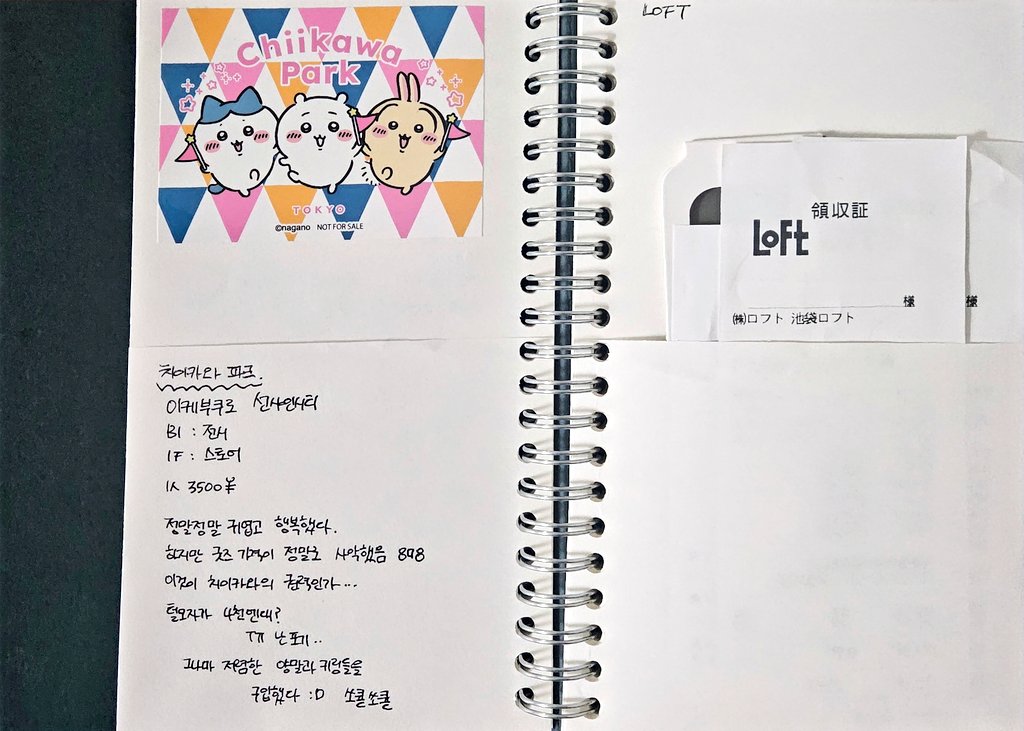 Chiikawa
Park
TOKYO
©nagano NOT FOR SALE
치이카와 파크.
이케부쿠로 선샤인시티
B1 : 전시
1F : 스토어
1人 3500¥
정말정말 귀엽고 행복했다.
하지만 굿즈 가격이 정말로 사악했음
이것이 치이카와의 권력인가...
털모자가 4천엔대?
ㅠㅠ 난 포기..
그나마 저렴한 양말과 키링들을
구입했다 :D 쏘쿨쏘쿨
LOFT
領収証
LOFT
様
様
㈱ロフト 池袋ロフト